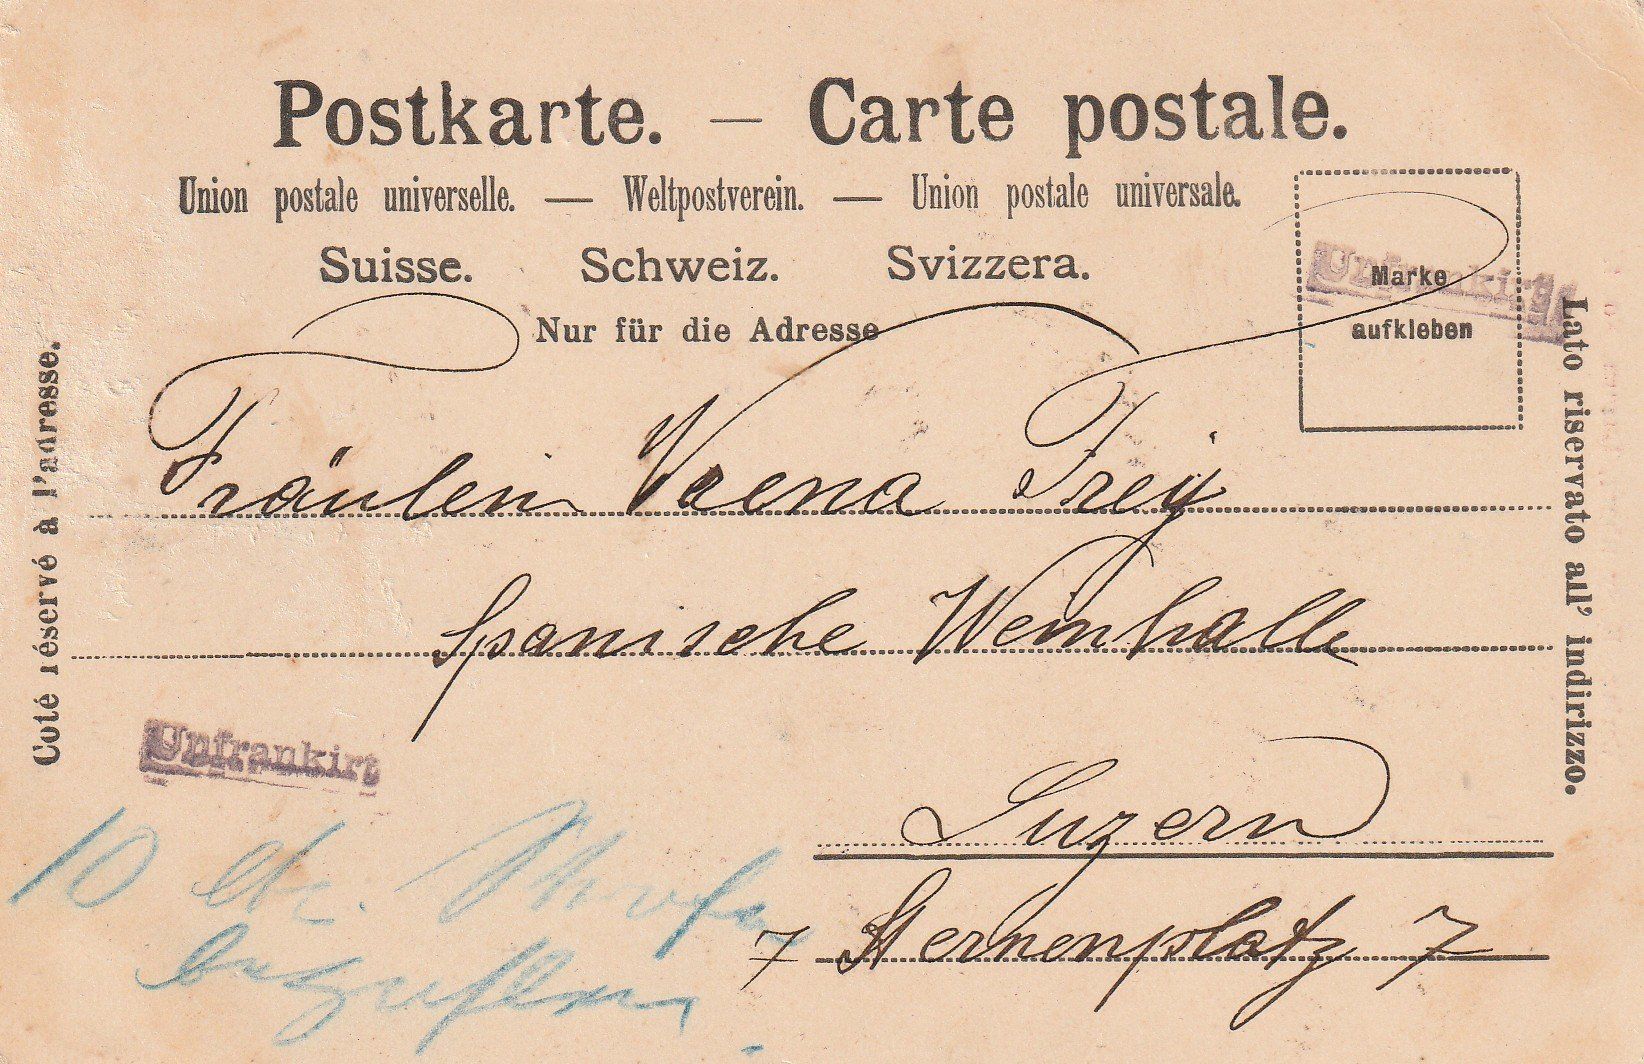 Postkarte. — Carte postale.
Union postale universelle. — Weltpostverein. — Union postale universale.
Suisse. Schweiz. Svizzera.
Nur für die Adresse
Marke
aufkleben
Unfrankirt
Coté réservé à l'adresse.
Lato riservato all' indirizzo.
Fräulein Verena Frey
Spanische Weinhalle
Unfrankirt
Luzern
7 Sternenplatz 7
10